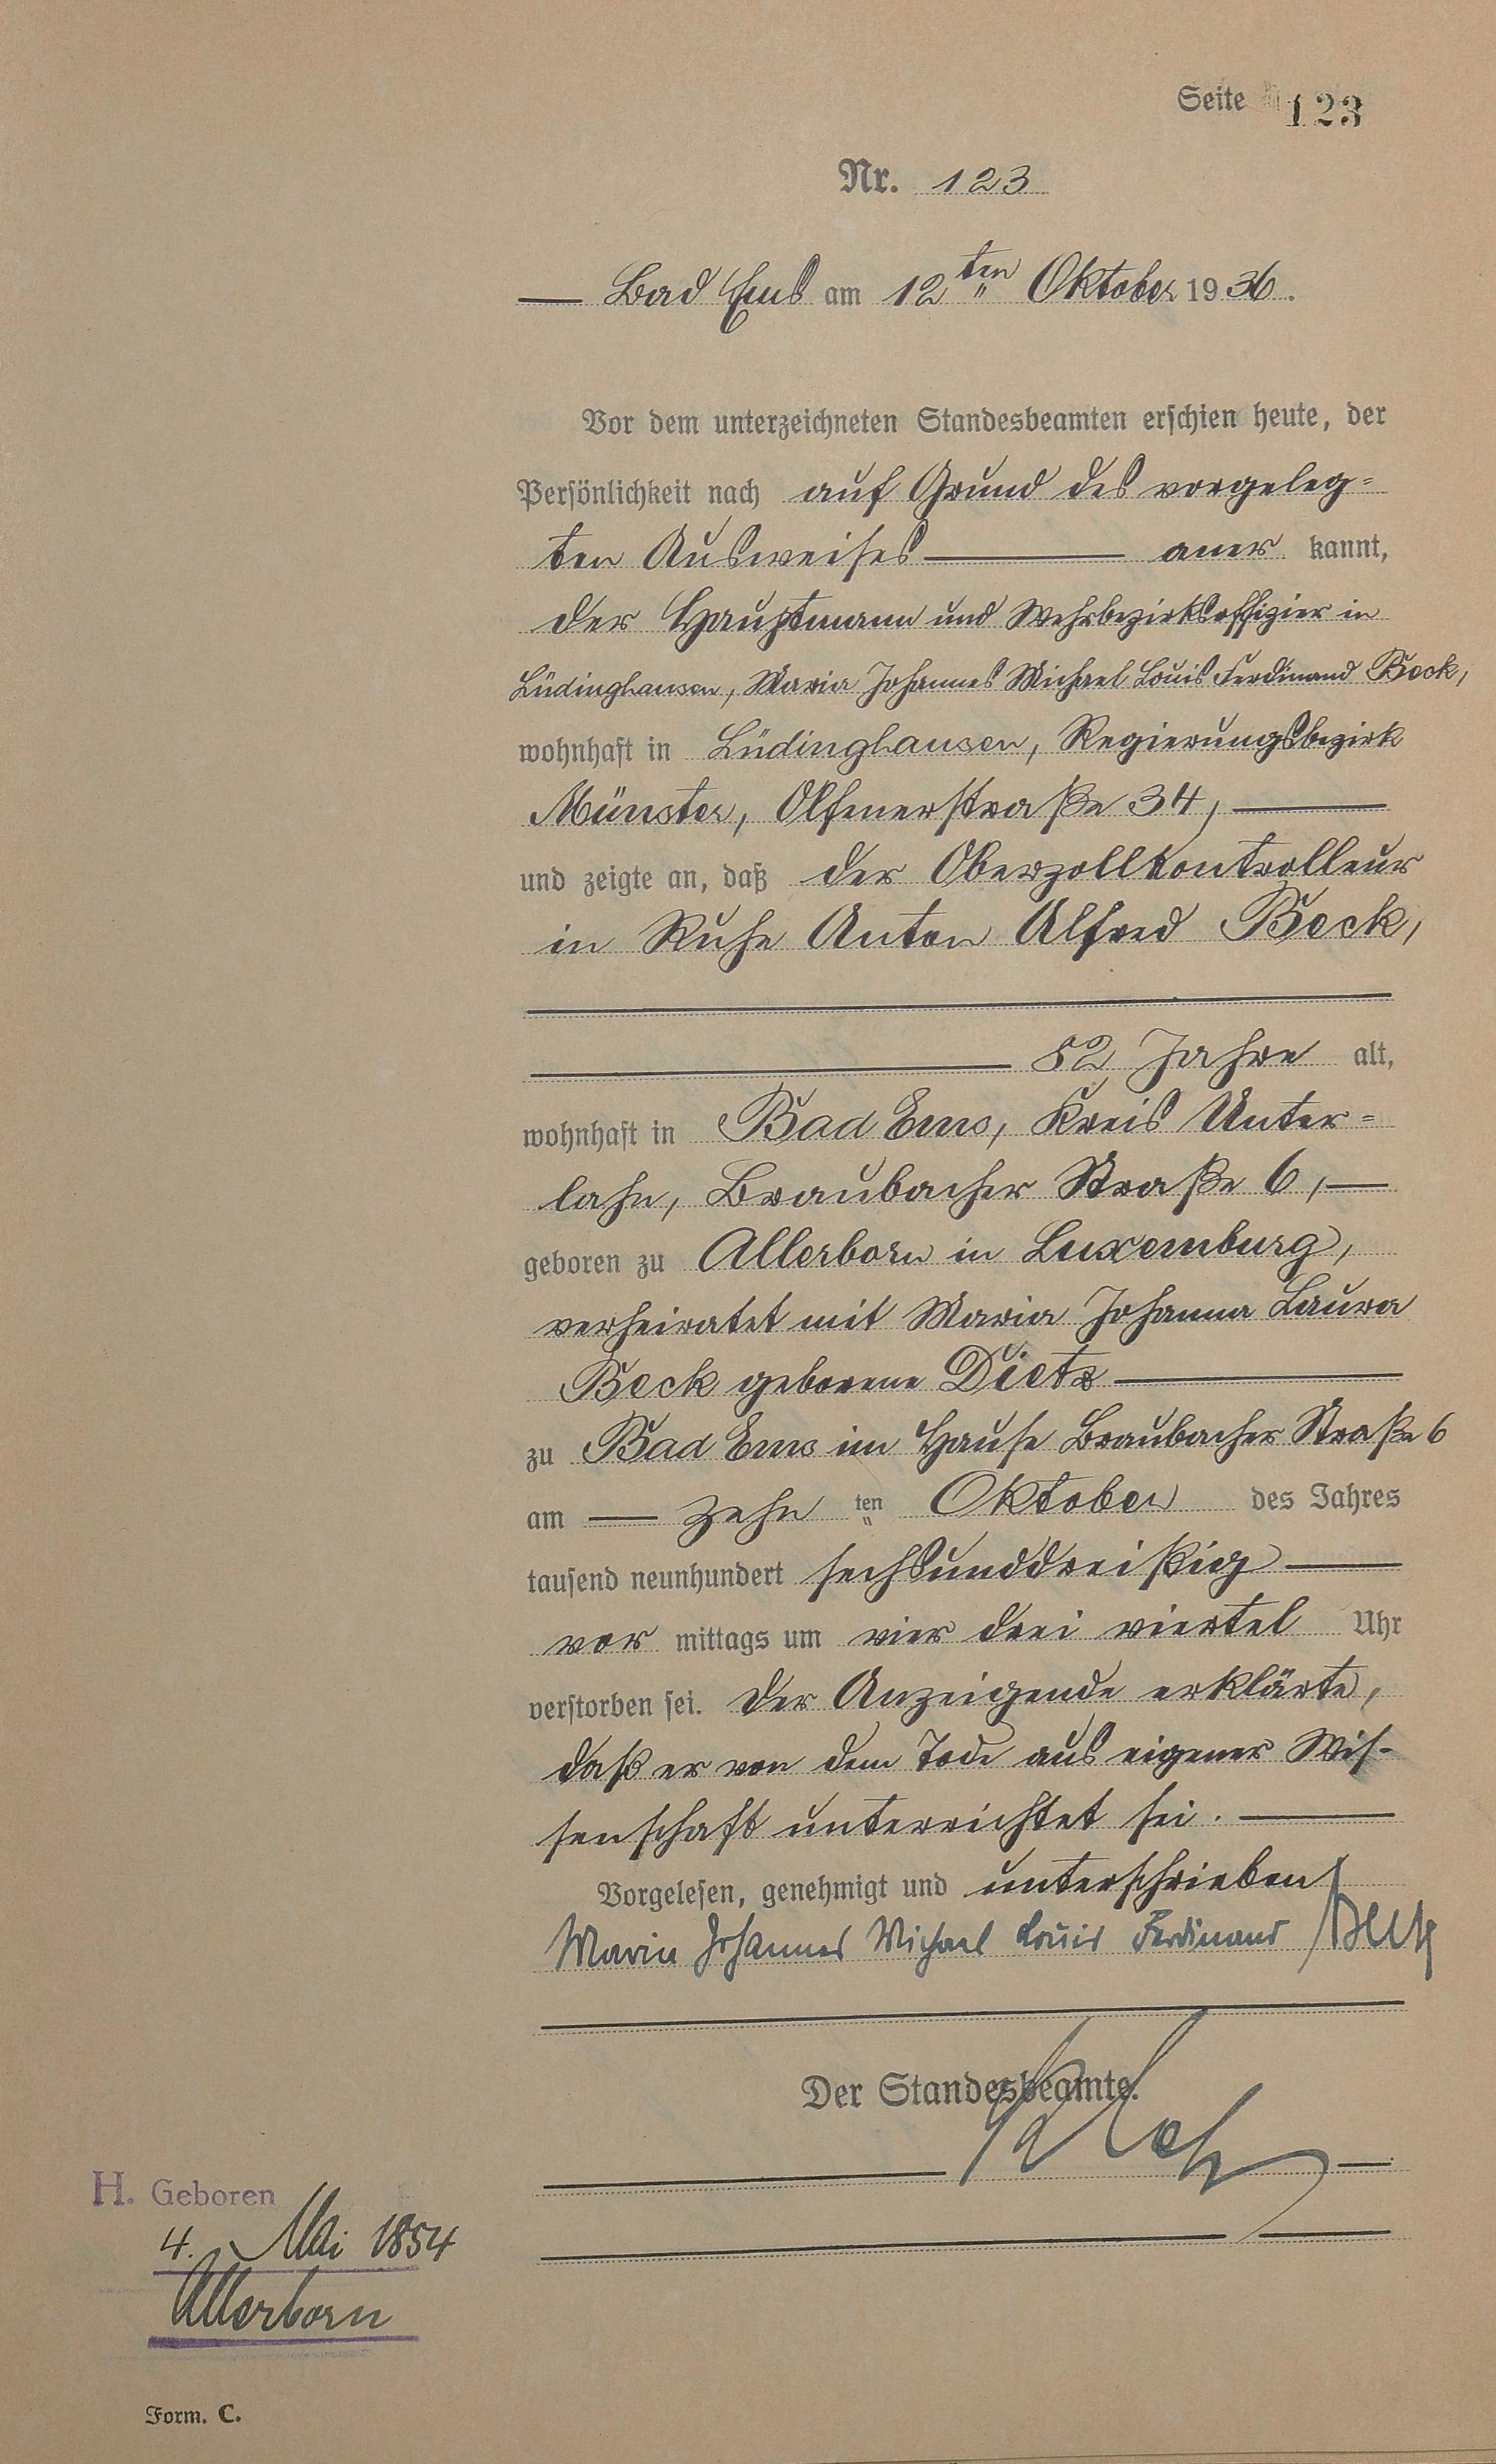 Seite 123
Nr. 123
Bad Ems am 12ten Oktober 1936.
Vor dem unterzeichneten Standesbeamten erschien heute, der
Persönlichkeit nach auf Grund des vorgeleg=
ten Ausweises aner kannt,
der Hauptmann und Wehrbezirksoffizier in
Lüdinghausen, Maria Johannes Michael Louis Ferdinand Beck,
wohnhaft in Lüdinghausen, Regierungsbezirk
Münster, Olfenerstraße 34,
und zeigte an, daß der Oberzollkontrolleur
in Ruhe Anton Alfred Beck,
82 Jahre alt,
wohnhaft in Bad Ems, Kreis Unter=
lahn, Braubacher Straße 6,
geboren zu Allerborn in Luxemburg,
verheiratet mit Maria Johanna Laura
Beck geborene Dietz
zu Bad Ems im Hause Braubacher Straße 6
am zehn ten Oktober des Jahres
tausend neunhundert sechsunddreißig
vor mittags um vier drei viertel Uhr
verstorben sei. Der Anzeigende erklärte,
daß er von dem Tode aus eigener Wis-
senschaft unterrichtet sei.
Vorgelesen, genehmigt und unterschrieben
Maria Johannes Michael Louis Ferdinand Beck
Der Standesbeamte.
H. Geboren
4. Mai 1854
Allerborn
Form. C.